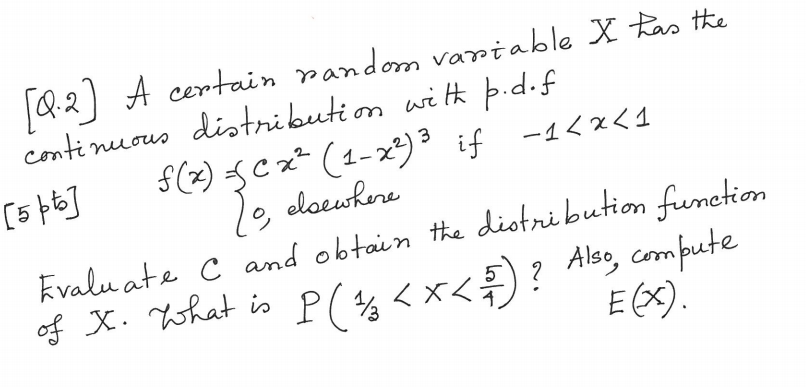 [Q.2] A certain random variable X has the
continuous distribution with p.d.f
f(x) = { c x² (1-x²)³ if -1<x<1
[5 pts] 0, elsewhere
Evaluate C and obtain the distribution function
of X. What is P(1/3 < X < 5/4)? Also, compute
E(X).